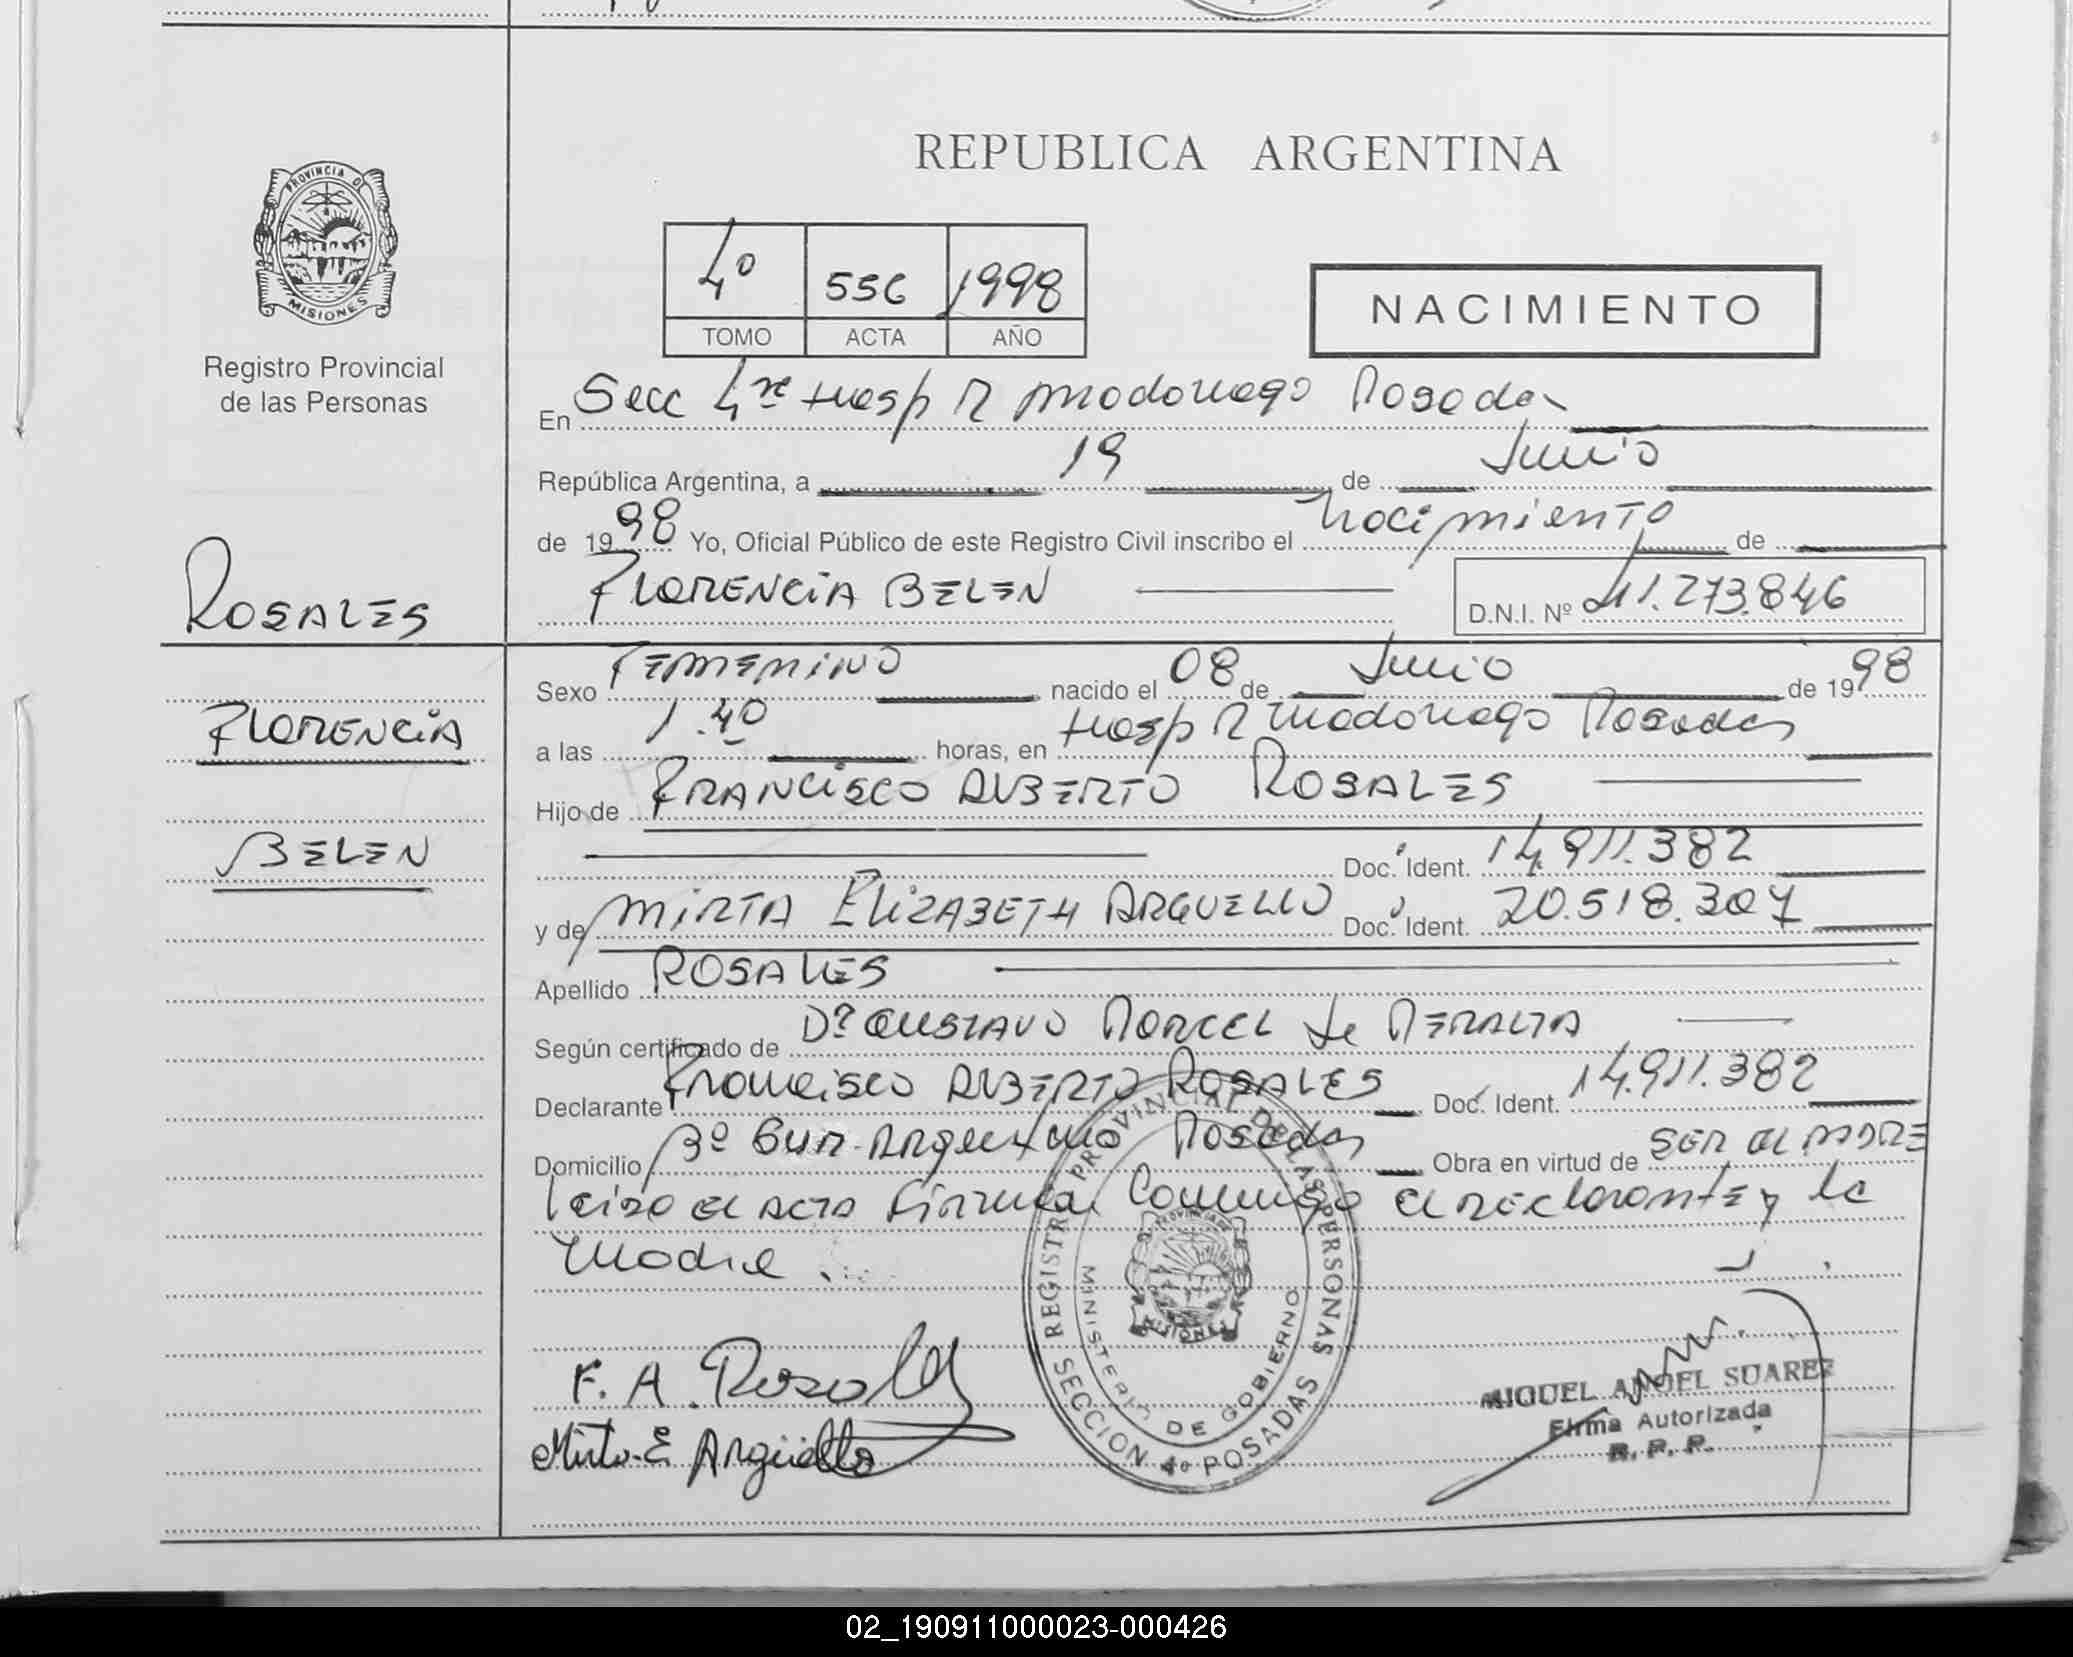 REPUBLICA ARGENTINA
PROVINCIA DE
MISIONES
Registro Provincial
de las Personas
4º 556 1998
TOMO ACTA AÑO
NACIMIENTO
En Secc 4ta Hosp R Madariaga Posadas
República Argentina, a 19 de Junio
de 1998 Yo, Oficial Público de este Registro Civil inscribo el nacimiento de
ROSALES
FLORENCIA BELEN D.N.I. Nº 41.273.846
Sexo FEMENINO nacido el 08 de Junio de 1998
FLORENCIA
a las 1.40 horas, en Hosp R Madariaga Posadas
Hijo de FRANCISCO ALBERTO ROSALES
BELEN
Doc. Ident. 14.911.382
y de MIRTA ELIZABETH ARGUELLO Doc. Ident. 20.518.307
Apellido ROSALES
Según certificado de Dr GUSTAVO MARCEL de PERALTA
Declarante FRANCISCO ALBERTO ROSALES Doc. Ident. 14.911.382
Domicilio Bº Posadas Obra en virtud de SER EL PADRE
leida el acta firman conmigo el declarante y la
Madre.
F. A. Rosales
Mirta E Argüello
REGISTRO PROVINCIAL DE LAS PERSONAS
MINISTERIO DE GOBIERNO
PROVINCIA DE
MISIONES
SECCION 4º POSADAS
MIGUEL ANGEL SUAREZ
Firma Autorizada
R. P. P.
02_190911000023-000426